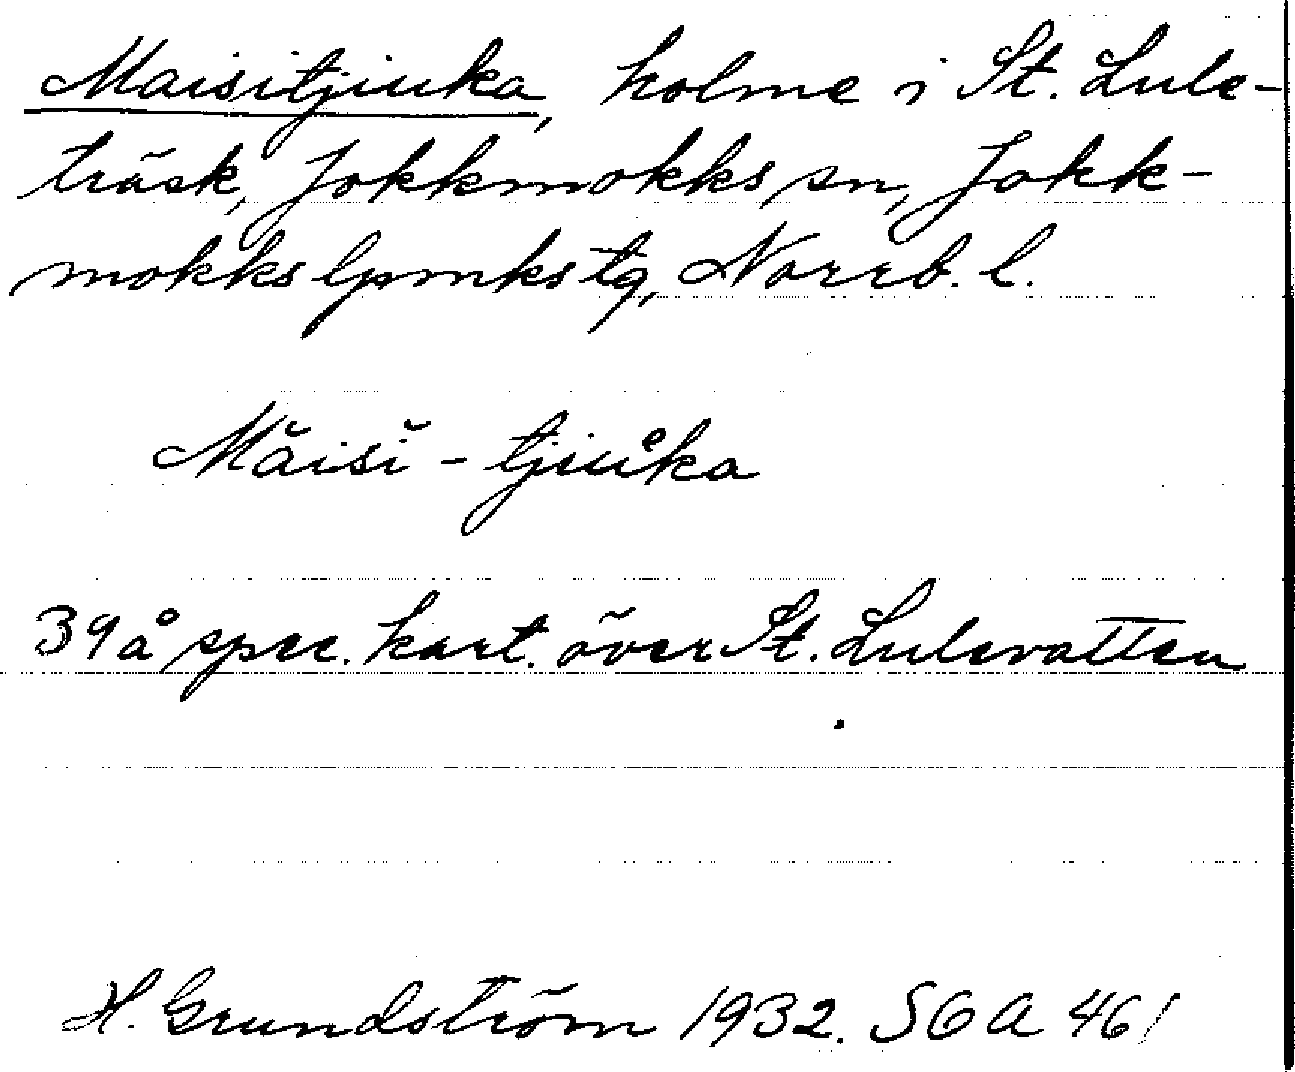 Maisitjiuka, holme i St. Lule-
träsk, Jokkmokks sn, Jokk-
mokks lpmks tg, Norrb. l.
Măisĭ - tjiu̥ka
39å spec. kart. över St. Lulevatten
H. Grundström 1932. SOA 461